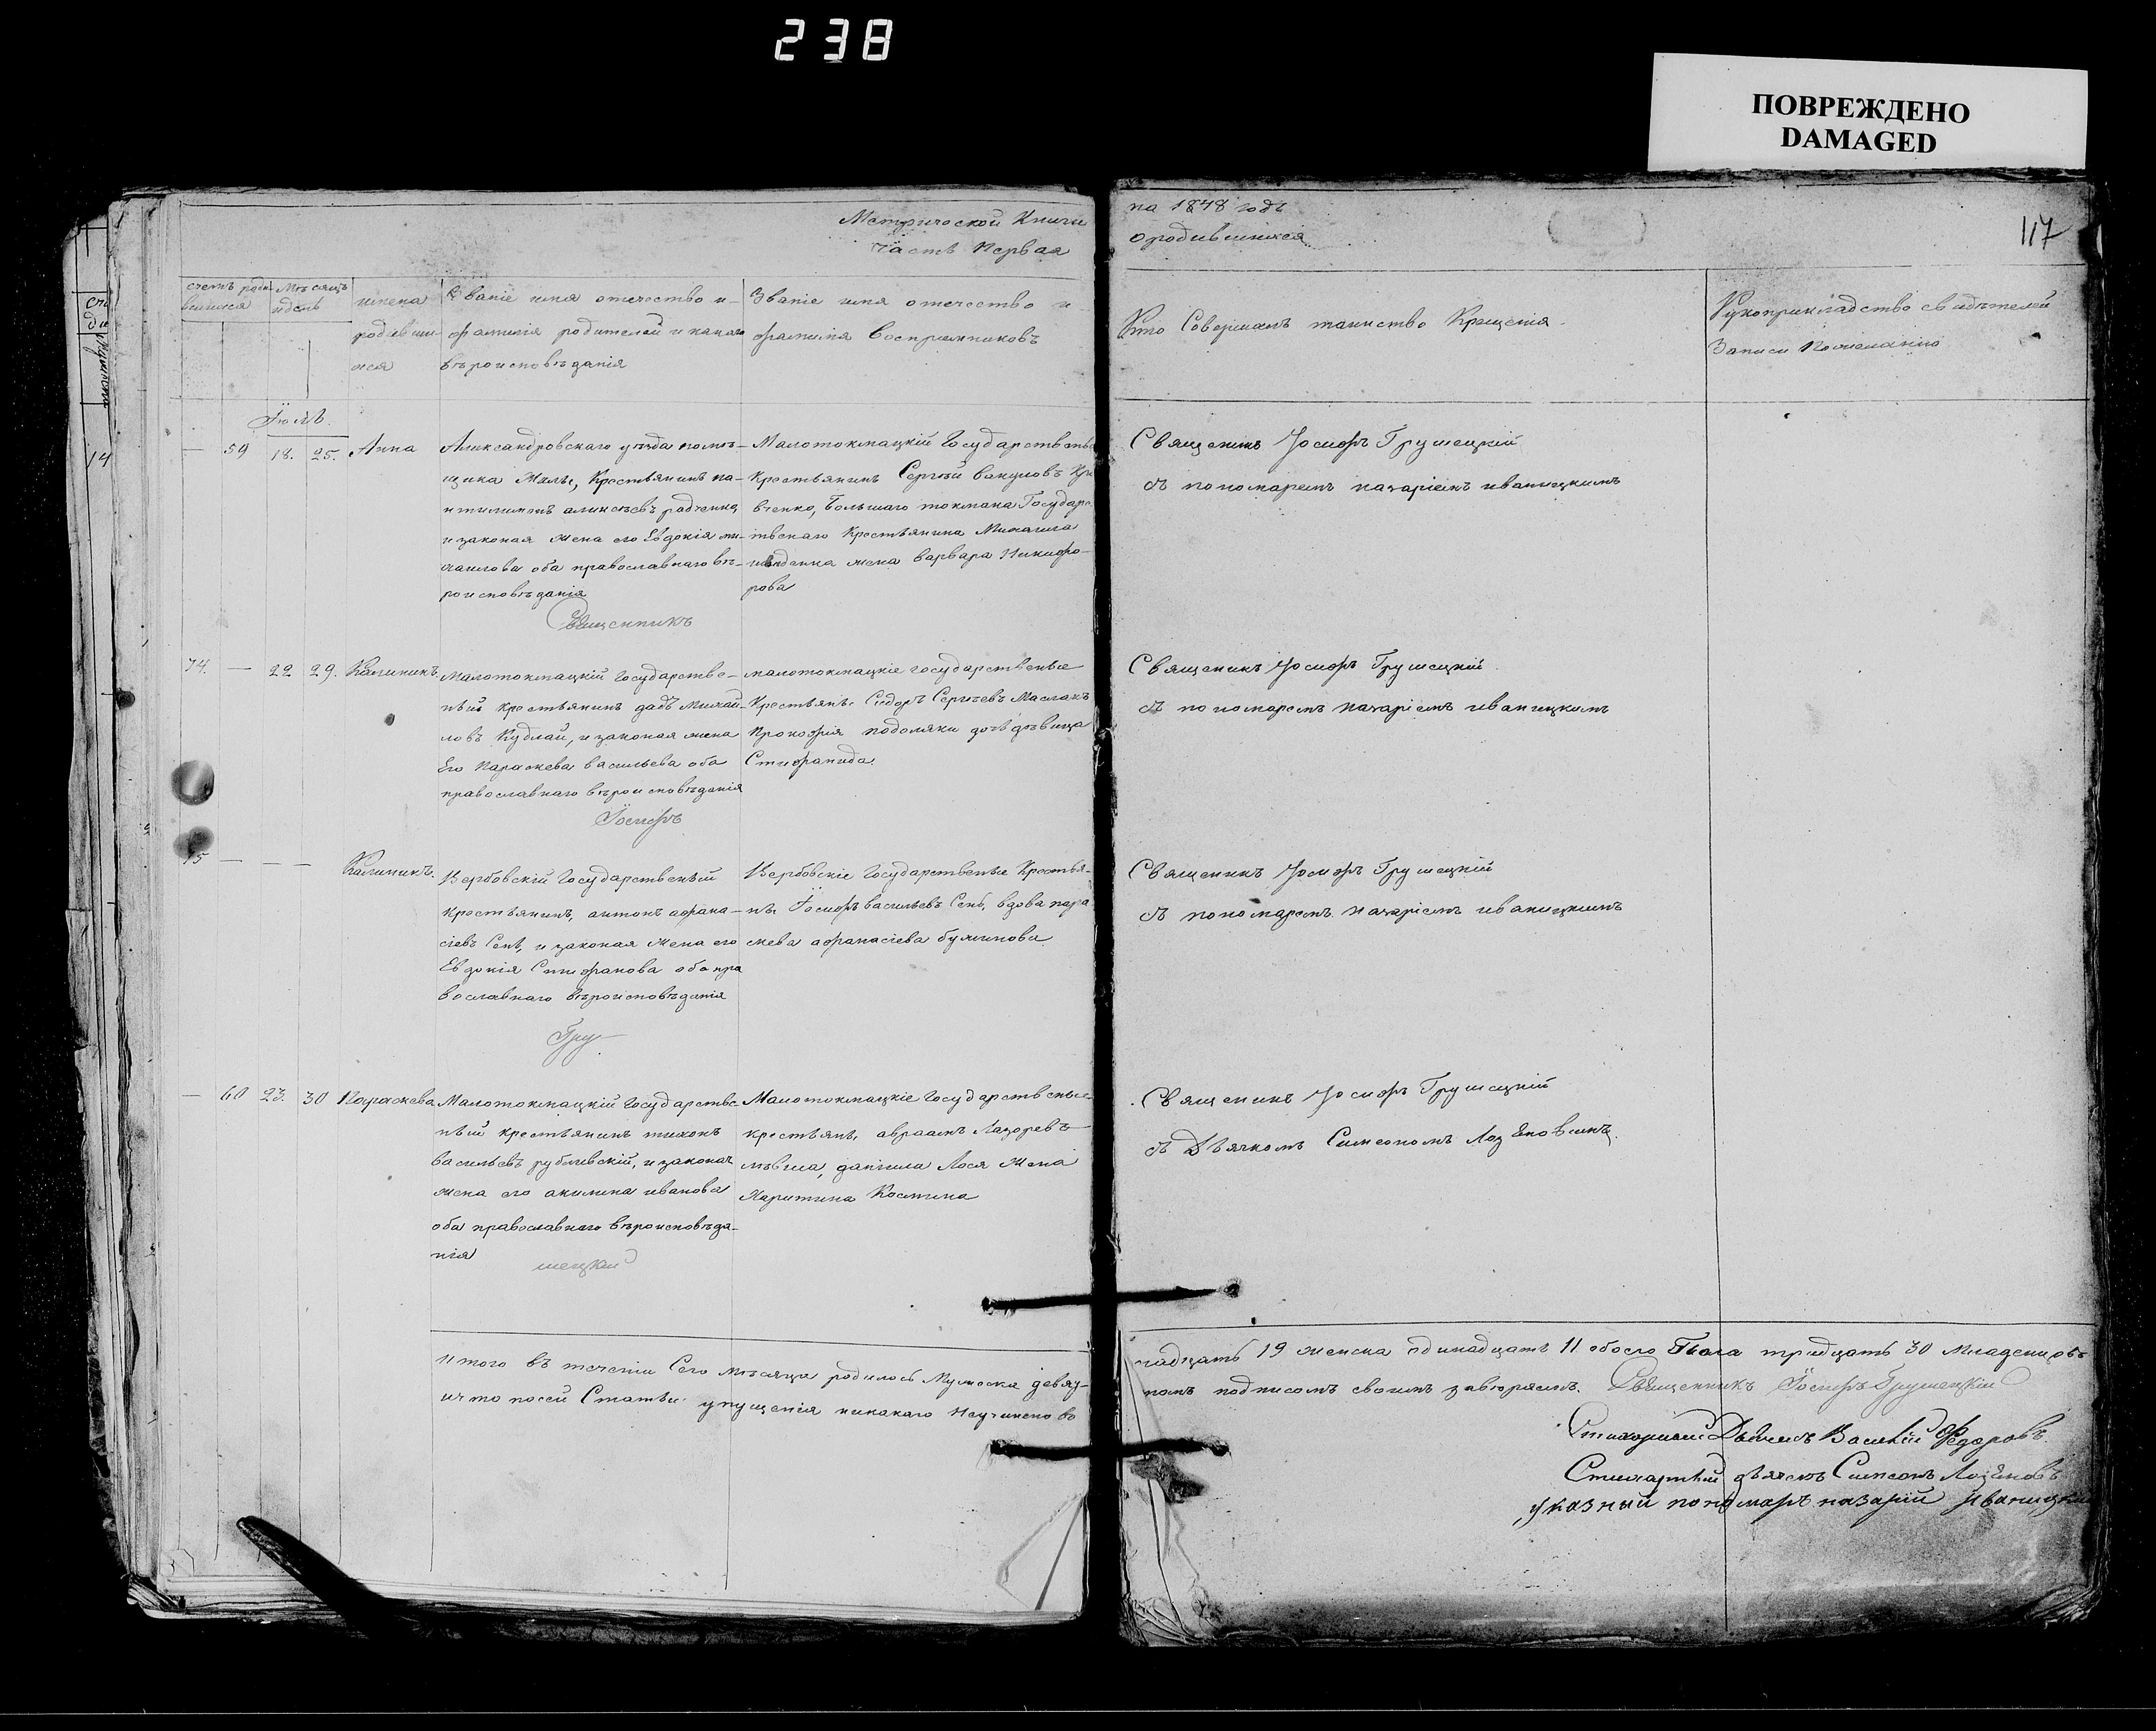 238
ПОВРЕЖДЕНО
DAMAGED
Метрической Книги
Часть Первая
на 1848 годъ
ородившихся
117
счетъ роди
вшихся
Мѣсяцъ
идень
имена
родивши
мся
Званіе имя отечество и
фамилія родителей и какаго
вѣроисповѣданія
Званіе имя отечество и
фамилія воспріемниковъ
Кто Совершалъ таинство Крещенія
Рукоприкладство свидѣтелей
Записи Пожеланію
Іюль
— 59 18. 25. Анна
Александровскаго уѣзда помѣ-
щика Крестьянинъ па-
радченка
и законая жена его Евдокія ми-
хаилова оба православнаго вѣ-
роисповѣданія
Малотокмацкій Государственый
Крестьянинъ Сергѣй вакуловъ Кри
вченко, Большаго токмака Государс
твенаго Крестьянина Михаила
жена варвара Никифо-
рова
Священикъ Іосифъ Грушецкій
съ пономаремъ назаріемъ иваницкимъ
Священникъ
74. — 22 29. Калиникъ.
Малотокмацкій Государстве-
ный крестьянинъ Михай
ловъ Кудлай, и законая жена
Его Параскева васильева оба
православнаго вѣроисповѣданія
малотокмацкіе государственые
Крестьяне Сидоръ Сергѣевъ Маслакъ
Прокофія подоляки дочь дѣвица
Стефанида.
Священикъ Іосифъ Грушецкій
съ пономаремъ назаріемъ иваницкимъ
Іосифъ
75 — — — Калиникъ.
Вербовскій Государственый
крестьянинъ, антонъ афана-
сіевъ и законая жена его
Евдокія Стефанова оба пра
вославнаго вѣроисповѣданія
Вербовскіе Государственые Крестья-
не Іосифъ васильевъ вдова пара
скева афанасіева
Священикъ Іосифъ Грушецкій
съ пономаремъ назаріемъ иваницкимъ
Гру—
— 60 23. 30 Параскева
Малотокмацкій Государстве
ный крестьянинъ тихонъ
васильевъ рублевскій, и законая
жена его акилина иванова
оба православнаго вѣроисповѣда-
нія
Малотокмацкіе Государственые
крестьяне, авраамъ Лазоревъ
даніила Лося жена
Харитина Космина
Священикъ Іосифъ Грушецкій
съ Дьячкомъ Симеономъ
шецкій
Итого въ теченіи Сего мѣсяца родилось Мужеска девят-
надцать 19 женска одинадцать 11 обоего Пола тридцать 30 Младенцовъ
ичто посей Статьи упущенія никакаго Неучинено во
томъ подписомъ своимъ завѣряемъ. Священникъ Іосифъ Грушецкій
Василій Федоровъ
дьячокъ Симеонъ
указный пономарь назарій Иваницкій